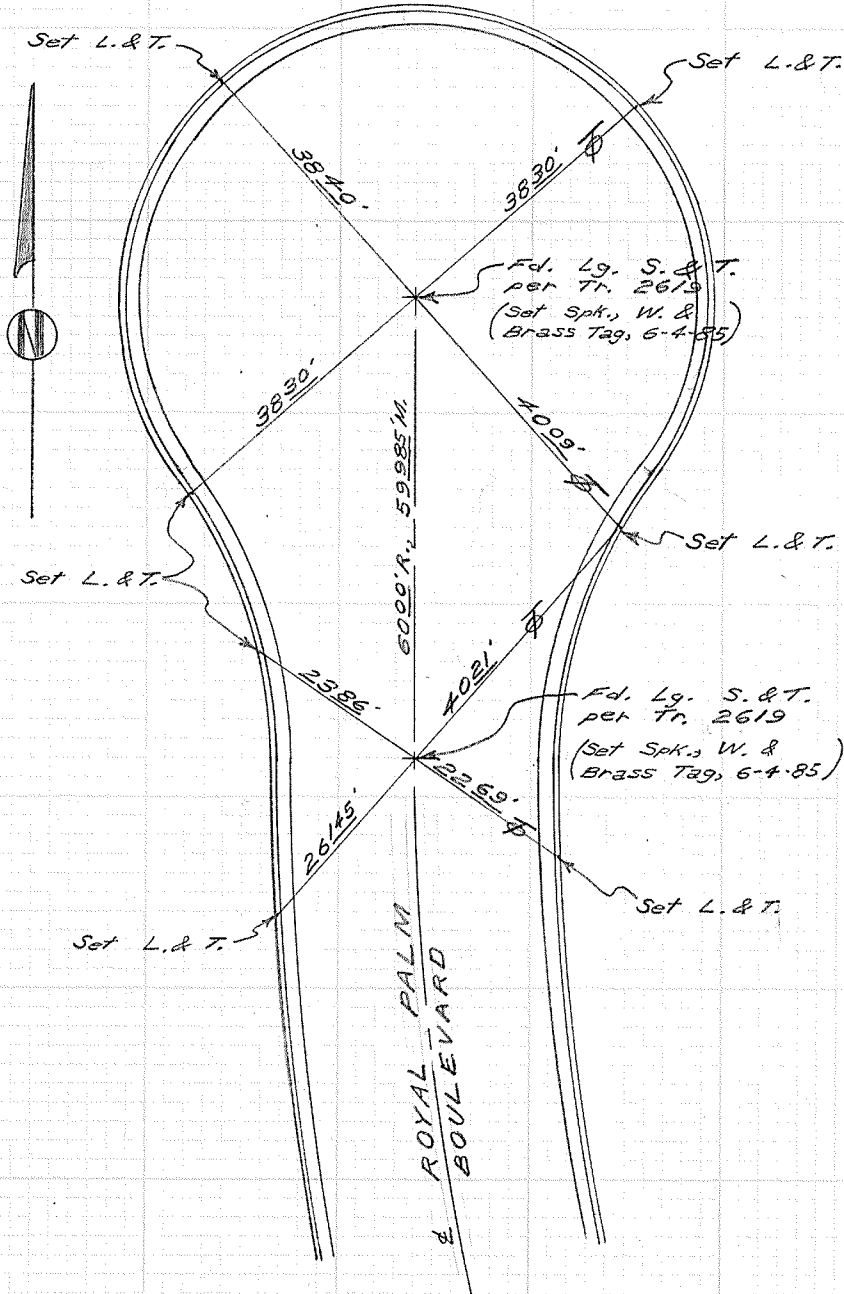 Set L. & T.
Set L. & T.
3840-
3830'
Fd. Lg. S. & T.
per Tr. 2619
(Set Spk., W. &
Brass Tag, 6-4-85)
N
3830'
4009-
6000'R., 59985'M.
Set L. & T.
Set L. & T.
2386-
4021'
Fd. Lg. S. & T.
per Tr. 2619
(Set Spk., W. &
Brass Tag, 6-4-85)
2269-
26145'
Set L. & T.
Set L. & T.
℄ ROYAL PALM
BOULEVARD